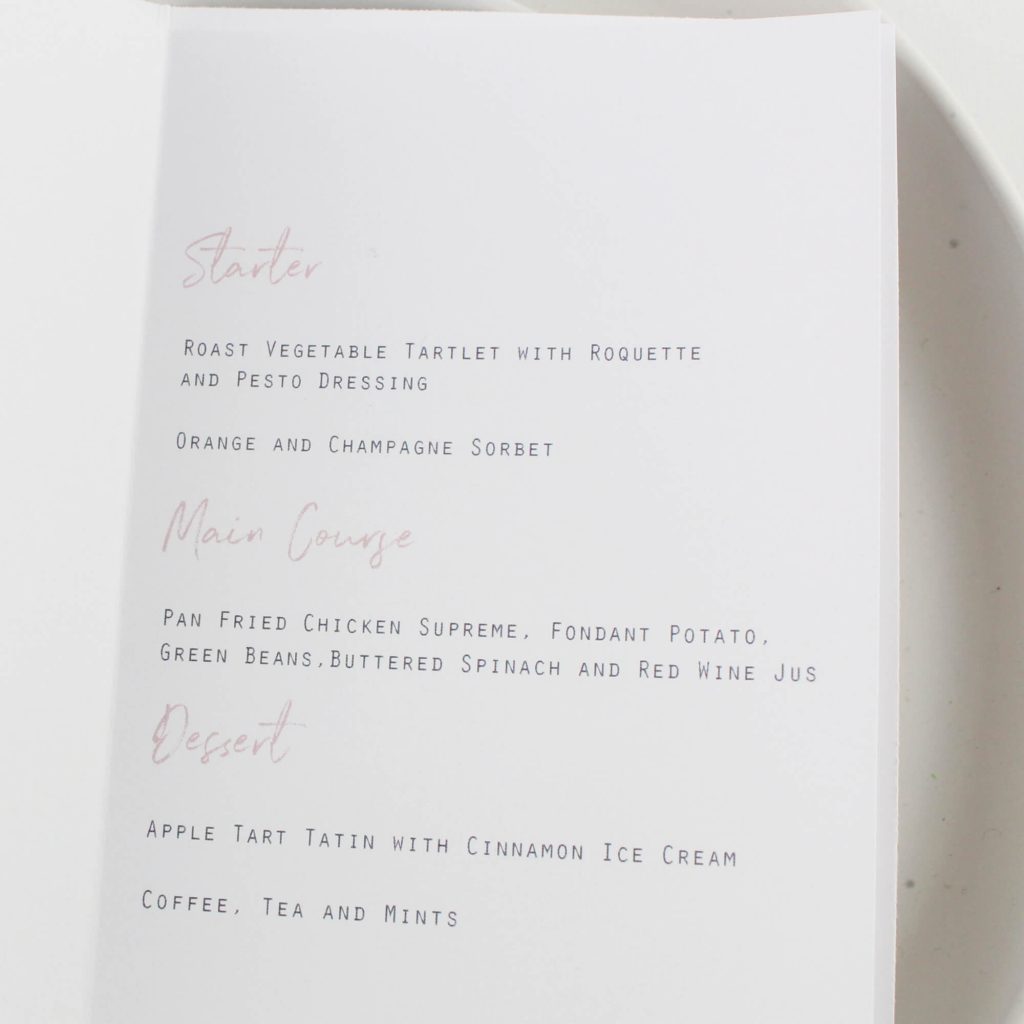 Starter
Roast Vegetable Tartlet with Roquette
and Pesto Dressing
Orange and Champagne Sorbet
Main Course
Pan Fried Chicken Supreme, Fondant Potato,
Green Beans,Buttered Spinach and Red Wine Jus
Dessert
Apple Tart Tatin with Cinnamon Ice Cream
Coffee, Tea and Mints